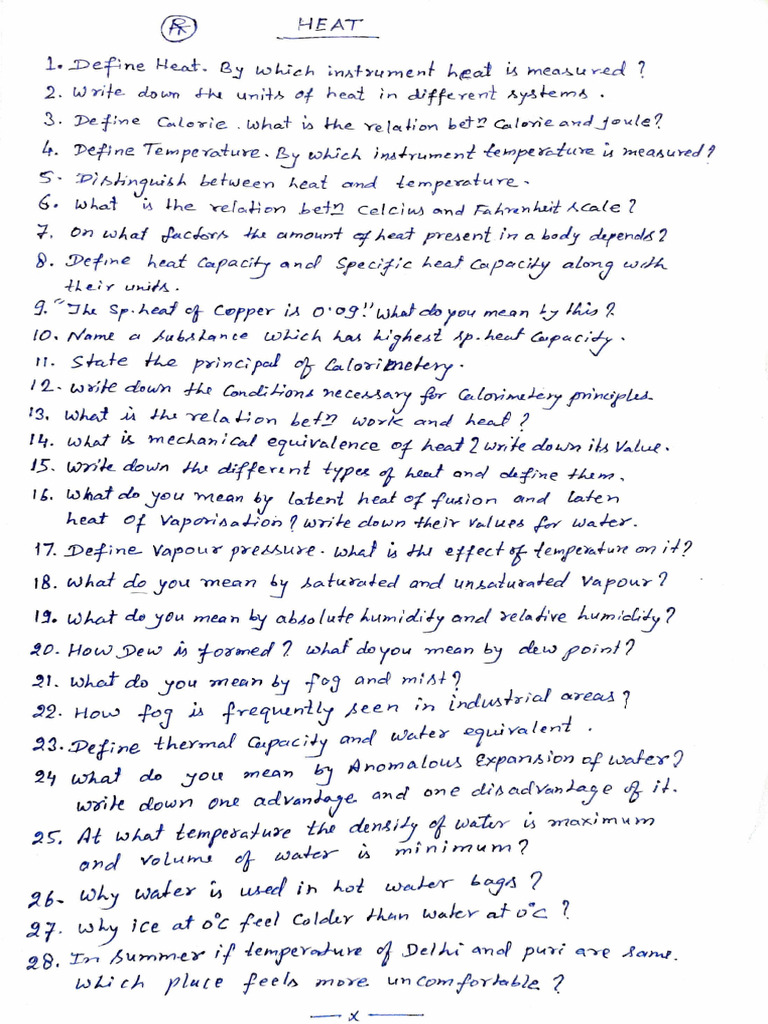 RT HEAT
1. Define Heat. By which instrument heat is measured?
2. Write down the units of heat in different systems.
3. Define Calorie. What is the relation betn Calorie and Joule?
4. Define Temperature. By which instrument temperature is measured?
5. Distinguish between heat and temperature.
6. What is the relation betn Celcius and Fahrenheit scale?
7. On what factors the amount of heat present in a body depends?
8. Define heat Capacity and Specific heat Capacity along with
their units.
9. "The Sp. heat of Copper is 0.09". What do you mean by this?
10. Name a substance which has highest sp. heat Capacity.
11. State the principal of Calorimetery.
12. Write down the Conditions necessary for Calorimetery principles.
13. What is the relation betn work and heat?
14. What is mechanical equivalence of heat? Write down its Value.
15. Write down the different types of heat and define them.
16. What do you mean by latent heat of fusion and laten
heat of Vaporisation? Write down their values for water.
17. Define Vapour pressure. What is the effect of temperature on it?
18. What do you mean by saturated and unsaturated Vapour?
19. What do you mean by absolute humidity and relative humidity?
20. How Dew is formed? What do you mean by dew point?
21. What do you mean by fog and mist?
22. How fog is frequently seen in industrial areas?
23. Define thermal Capacity and water equivalent.
24 What do you mean by Anomalous Expansion of water?
Write down one advantage and one disadvantage of it.
25. At what temperature the density of water is maximum
and volume of water is minimum?
26- Why water is used in hot water bags?
27. Why ice at 0°C feel Colder than water at 0°C?
28. In Summer if temperature of Delhi and puri are same.
Which place feels more uncomfortable?
— x —